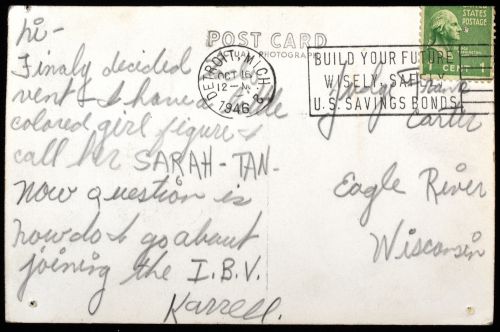 hi-
POST CARD
ACTUAL PHOTOGRAPH
Finaly decided
vent - I have a
colored girl figure &
call her SARAH-TAN-
now question is
how do I go about
joining the I.B.V.
Karrell.
DETROIT, MICH.
OCT 16
12-M
1946
BUILD YOUR FUTURE
WISELY, SAFELY
U.S. SAVINGS BONDS
UNITED STATES
POSTAGE
CENT 1
Carter
Eagle River
Wisconsin